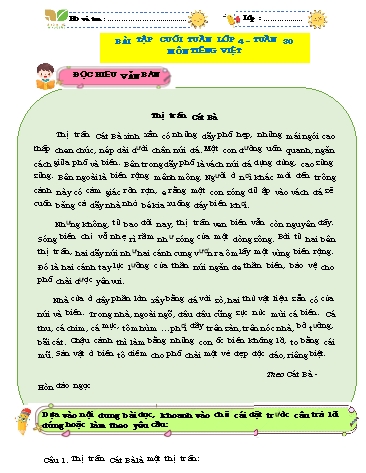 Họ và tên : ..............................
Lớp : ...............
BÀI TẬP CUỐI TUẦN LỚP 4 – TUẦN 30
MÔN TIẾNG VIỆT
ĐỌC HIỂU VĂN BẢN
Thị trấn Cát Bà
Thị trấn Cát Bà xinh xắn có những dãy phố hẹp, những mái ngói cao
thấp chen chúc, nép dài dưới chân núi đá. Một con đường uốn quanh, ngăn
cách giữa phố và biển. Bên trong dãy phố là vách núi đá dựng đứng, cao sừng
sững. Bên ngoài là biển rộng mênh mông. Người ở nơi khác mới đến trông
cảnh này có cảm giác rờn rợn, e rằng một con sóng dữ ập vào vách đá sẽ
cuốn băng cả dãy nhà nhỏ bé kia xuống đáy biển khơi.
Nhưng không, từ bao đời nay, thị trấn ven biển vẫn còn nguyên đấy.
Sóng biển chỉ vỗ nhẹ rì rầm như sóng của một dòng sông. Bởi từ hai bên
thị trấn, hai dãy núi như hai cánh cung vươn ra ôm lấy một vùng biển rộng.
Đó là hai cánh tay lực lưỡng của thần núi ngăn đe thần biển, bảo vệ cho
phố chài được yên vui.
Nhà cửa ở đây phần lớn xây bằng đá với sò, hai thứ vật liệu sẵn có của
núi và biển. Trong nhà, ngoài ngõ, đâu đâu cũng sực nức mùi cá biển. Cá
thu, cá chim, cá mực, tôm hùm ...phơi đầy trên sân, trên nóc nhà, bờ tường,
bãi cát. Chậu cảnh thì làm bằng những con ốc biển khổng lồ, to bằng cái
mũ. Sản vật ở biển tô điểm cho phố chài một vẻ đẹp độc đáo, riêng biệt.
Theo Cát Bà -
Hòn đảo ngọc
Dựa vào nội dung bài đọc, khoanh vào chữ cái đặt trước câu trả lời
đúng hoặc làm theo yêu cầu:
Câu 1. Thị trấn Cát Bà là một thị trấn: